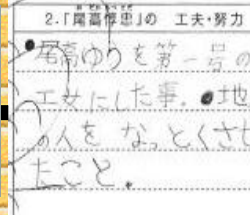 2.「尾高惇忠」の 工夫・努力
●尾高ゆうを第一号の
工女にした事。●地
の人を なっとくさせ
たこと。